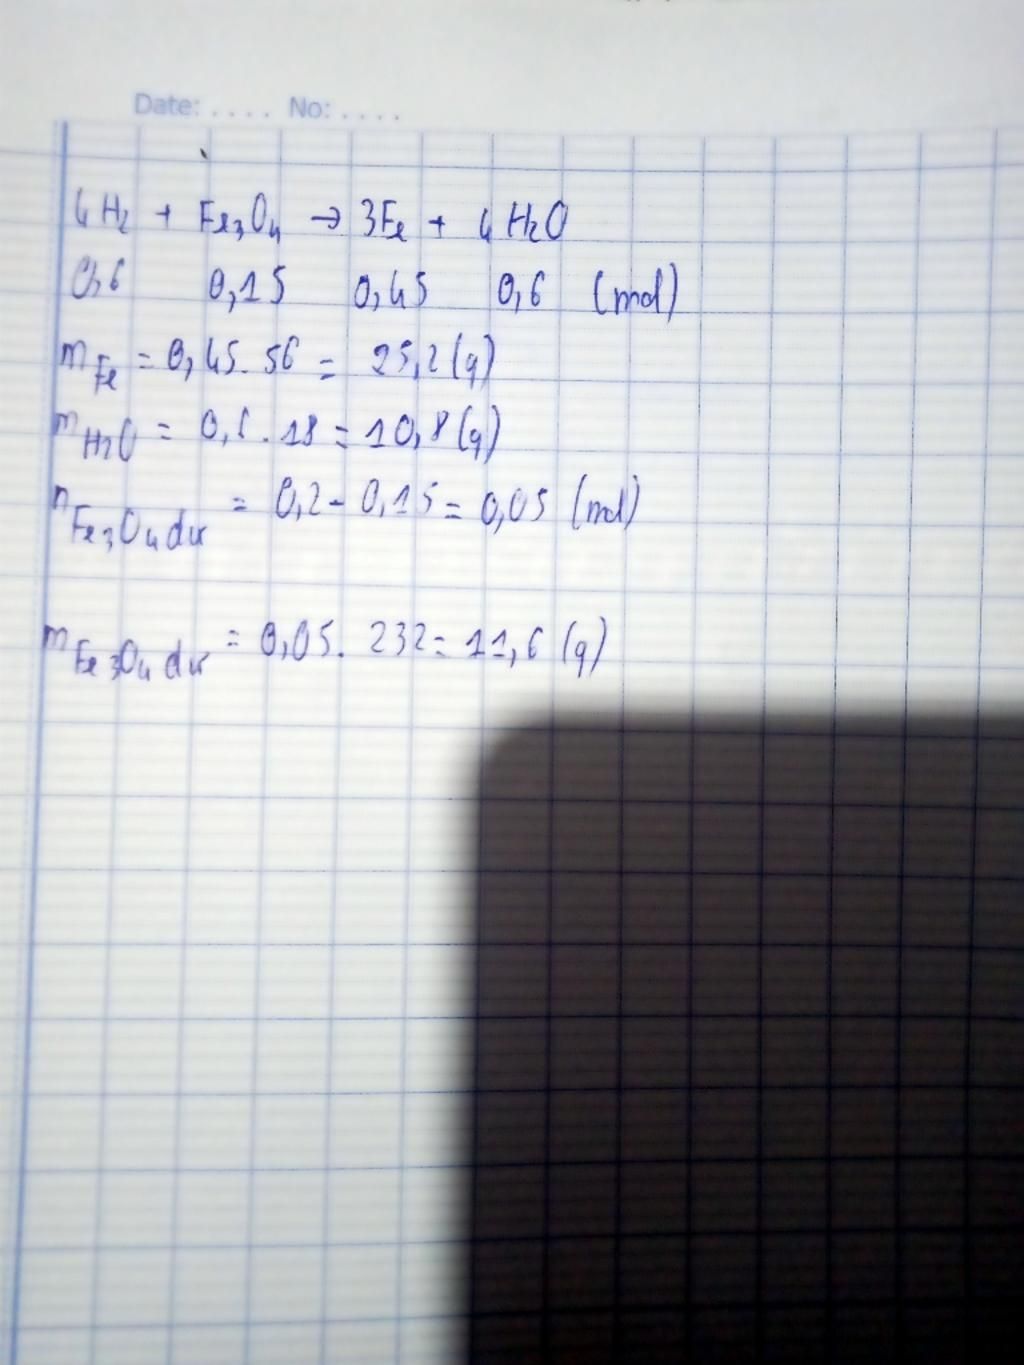 Date: .... No: ....
4H₂ + Fe₃O₄ → 3Fe + 4H₂O
0,6 0,15 0,45 0,6 (mol)
m Fe = 0,45. 56 = 25,2 (g)
m H₂O = 0,6 . 18 = 10,8 (g)
n Fe₃O₄ dư = 0,2 - 0,15 = 0,05 (mol)
m Fe₃O₄ dư = 0,05. 232 = 11,6 (g)